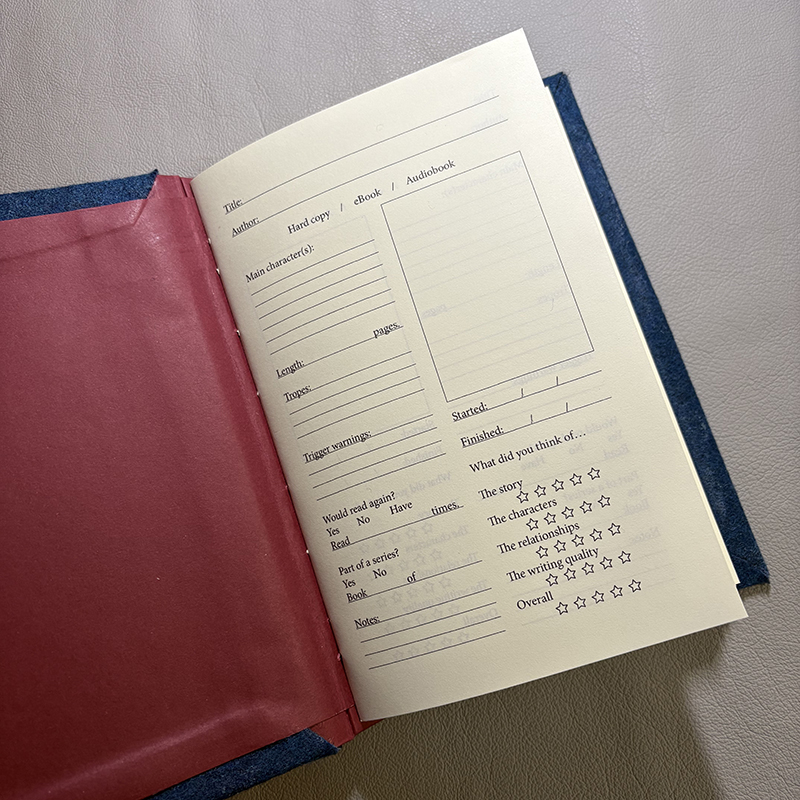 Title:
Author:
Hard copy / eBook / Audiobook
Main character(s):
Length: pages.
Tropes:
Trigger warnings:
Would read again?
Yes No Have
Read times.
Part of a series?
Yes No
Book of
Notes:
Started: / /
Finished: / /
What did you think of…
The story
The characters
The relationships
The writing quality
Overall